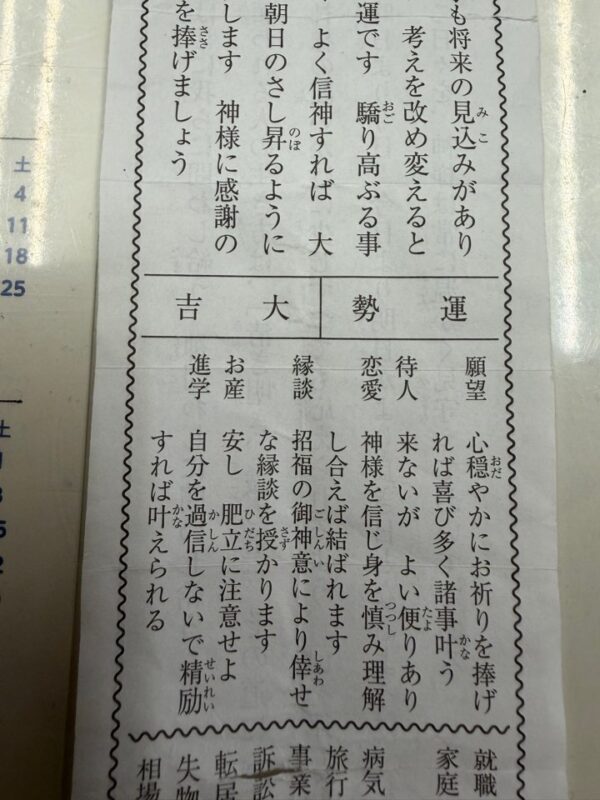 も将来の見込みがあり
考えを改め変えると
運です　驕り高ぶる事
よく信神すれば　大
朝日のさし昇るように
します　神様に感謝の
を捧げましょう
運勢
大吉
願望　心穏やかにお祈りを捧げ
れば喜び多く諸事叶う
待人　来ないが　よい便りあり
恋愛　神様を信じ身を慎み理解
し合えば結ばれます
縁談　招福の御神意により倖せ
な縁談を授かります
お産　安し　肥立に注意せよ
進学　自分を過信しないで精励
すれば叶えられる
就職
家庭
病気
旅行
事業
訴訟
転居
失物
相場
土
4
11
18
25
土